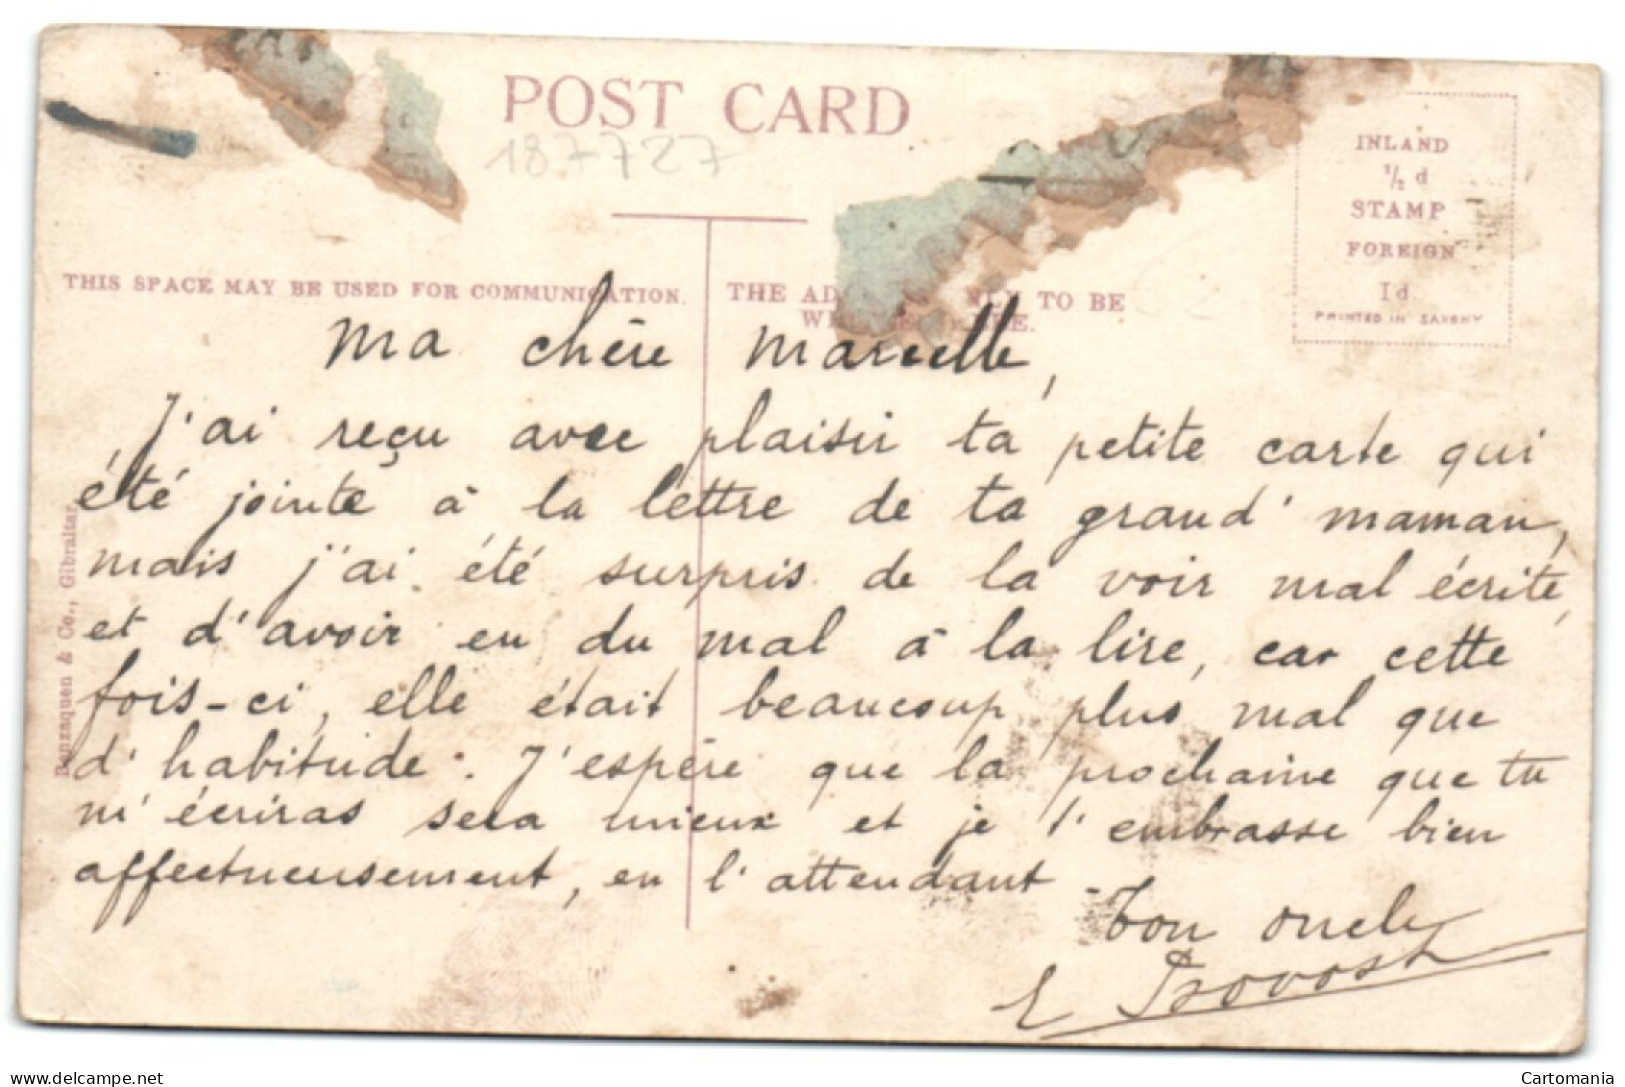 POST CARD
187727
INLAND
½ d
STAMP
FOREIGN
1d.
PRINTED IN SAXONY
THIS SPACE MAY BE USED FOR COMMUNICATION.
THE AD NLY TO BE
Ma chère Marcelle,
J'ai reçu avec plaisir ta petite carte qui
été jointe à la lettre de ta grand' maman,
mais j'ai été surpris de la voir mal écrite,
et d'avoir eu du mal à la lire, car cette
fois-ci, elle était beaucoup plus mal que
d'habitude. J'espère que la prochaine que tu
m'écriras sera mieux et je t'embrasse bien
affectueusement, en l'attendant.
Ton oncle
E Provost
Benzaquen & Co., Gibraltar.
delcampe.net
Cartomania